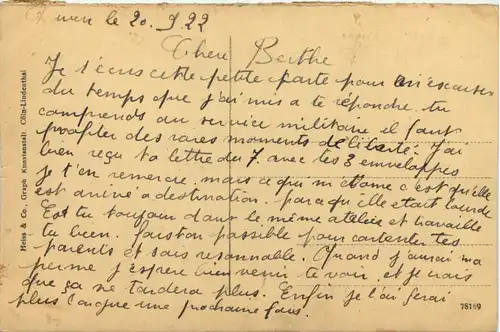 le 20. 9 22
Chere Berthe
Je t'ecris cette petite carte pour m'escuser
du temps que j'ai mis a te répondre. tu
comprends au service militaire il faut
profiter des rares moments de liberté. J'ai
bien reçu ta lettre du 7 avec les 3 enveloppes
je t'en remercie. mais ce qui m'etonne c'est qu'elle
est arrivé a destination. parce qu'elle etait lourde
Est tu toujours dans le même atelier et travaille
tu bien. fais ton possible pour contenter tes
parents et sois raisonnable. Quand j'aurai ma
perme j'espere bien venir te voir, et je crois
que ça ne tardera plus. Enfin je t'en ferai
plus longue une prochaine fois.
Heiss & Co., Graph. Kunstanstalt, Cöln-Lindenthal
78169